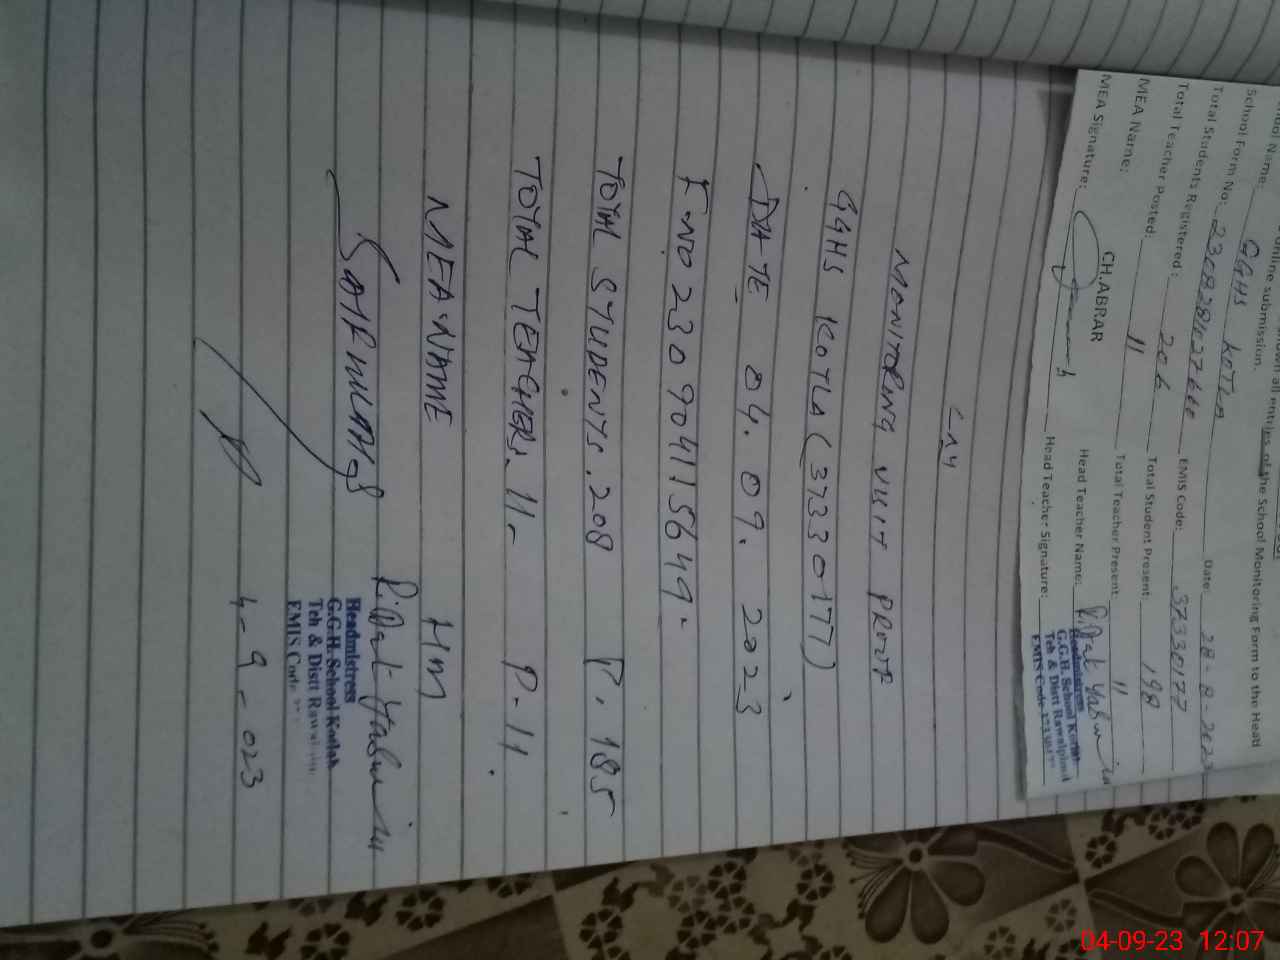 School Name: GGHS KOTLA
online submission.
all entries of the School Monitoring Form to the Head
School Form No: Date: 28-8-2023
Total Students Registered: 206 EMIS Code: 37330177
Total Teacher Posted: 11 Total Student Present 198
MEA Name: CH.ABRAR Total Teacher Present 11
Head Teacher Name:
MEA Signature: Head Teacher Signature:
Headmistress
G.G.H. School
Teh & Distt Rawalpindi
EMIS Code
MONITORING
GGHS KOTLA (37330177)
DATE 04.09.2023
F.NO 230904115649.
TOTAL STUDENTS.208 P.185
TOTAL TEACHERS.11- P-11
MEA.NAME HM
Headmistress
G.G.H. School Kotlah
Teh & Distt
EMIS Code
4-9-023
04-09-23 12:07